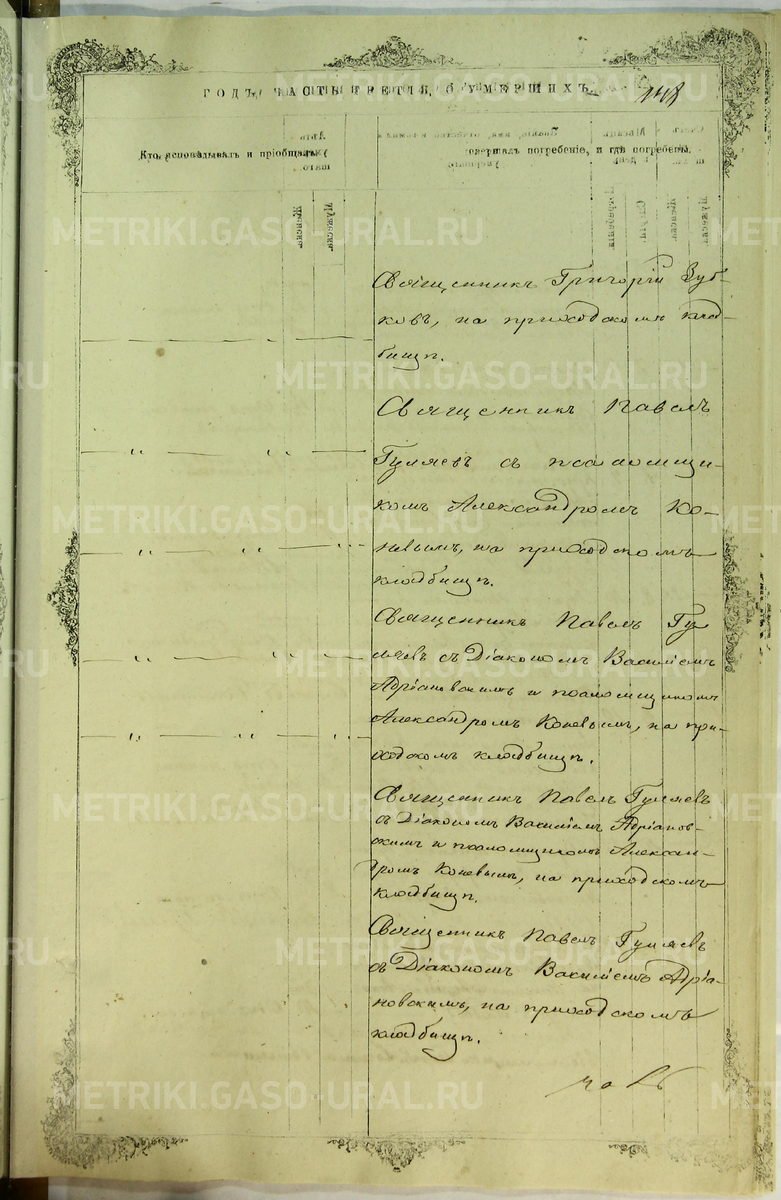 ГОДЪ, ЧАСТЬ ТРЕТІЯ, О УМЕРШИХЪ.
148
Кто исповѣдывалъ и пріобщалъ.
совершалъ погребеніе, и гдѣ погребены.
Священникъ Григорій Зуб-
ковъ, на приходскомъ клад-
бищѣ.
Священникъ Павелъ
Гуляевъ съ псаломщи-
комъ Александромъ Ко-
невымъ, на приходскомъ
кладбищѣ.
Священникъ Павелъ Гу-
ляевъ съ Діакономъ Василіемъ
Адріановскимъ и псаломщикомъ
Александромъ Коневымъ, на при-
ходскомъ кладбищѣ.
Священникъ Павелъ Гуляевъ
съ Діакономъ Василіемъ Адріанов-
скимъ и псаломщикомъ Алексан-
дромъ Коневымъ, на приходскомъ
кладбищѣ.
Священникъ Павелъ Гуляевъ
съ Діакономъ Василіемъ Адріа-
новскимъ, на приходскомъ
кладбищѣ.
METRIKI.GASO-URAL.RU